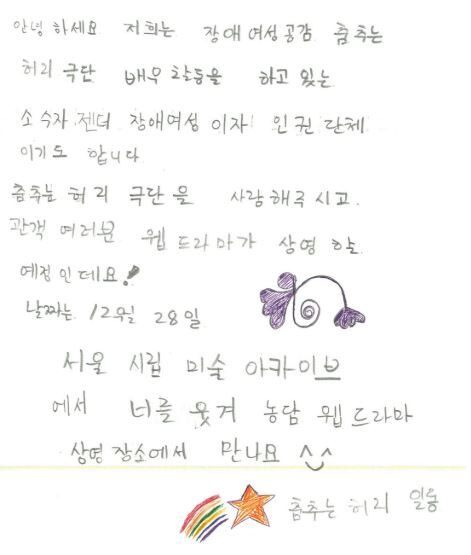 안녕 하세요 저희는 장애여성공감 춤추는
허리 극단 배우 활동을 하고 있는
소수자 젠더 장애여성 이자 인권 단체
이기도 합니다
춤추는 허리 극단을 사랑해주시고.
관객 여러분 웹드라마가 상영 할
예정인데요!
날짜는 12월 28일
서울 시립 미술 아카이브
에서 너를 웃겨 농담 웹드라마
상영장소에서 만나요 ^^
춤추는 허리 일동